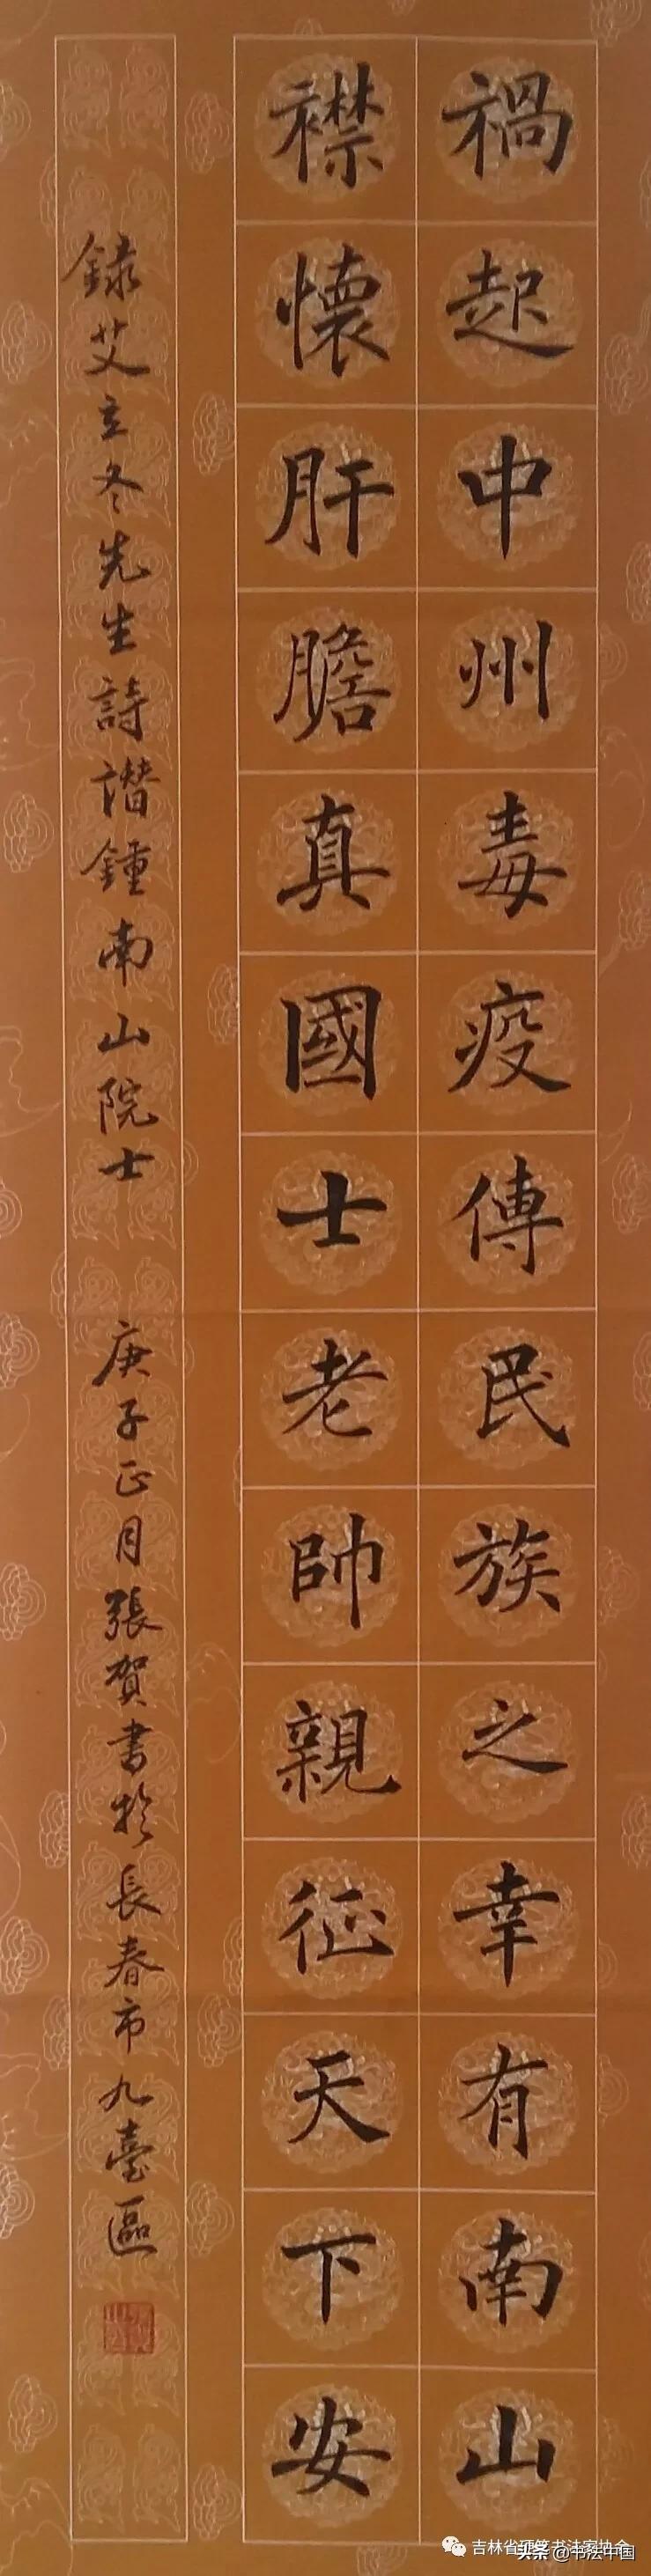 禍起中州毒疫傳民族之幸有南山
襟懷肝膽真國士老帥親征天下安
録艾立冬先生詩譜鍾南山院士 庚子正月張賀書於長春市九臺區
吉林省硬笔书法家协会
头条 @书法中国